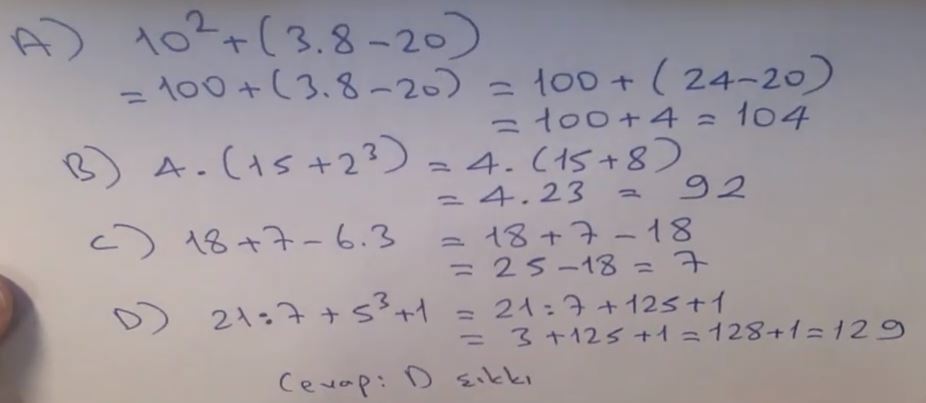 A) 10² + (3.8 - 20)
= 100 + (3.8 - 20) = 100 + (24 - 20)
= 100 + 4 = 104
B) 4. (15 + 2³) = 4. (15 + 8)
= 4.23 = 92
C) 18 + 7 - 6.3 = 18 + 7 - 18
= 25 - 18 = 7
D) 21:7 + 5³ + 1 = 21:7 + 125 + 1
= 3 + 125 + 1 = 128 + 1 = 129
Cevap: D şıkkı